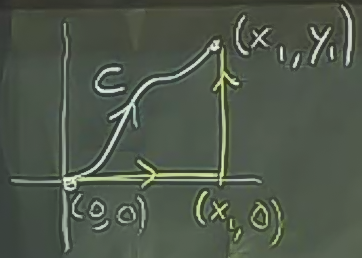 (x₁, y₁)
C
(0,0) (x₁, 0)